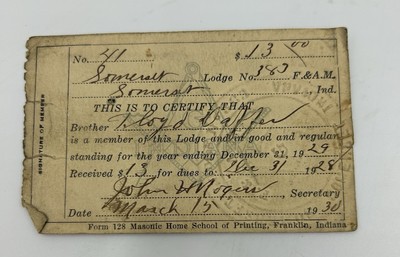 No. 41 $13.00
Somerset Lodge No. 383 F.&A.M.
Somerset, Ind.
THIS IS TO CERTIFY THAT
Brother Floyd
is a member of this Lodge and in good and regular
standing for the year ending December 31, 1929
Received $13 for dues to Dec 31 1928
John Secretary
Date March 15 1930
Form 128 Masonic Home School of Printing, Franklin, Indiana
SIGNATURE OF MEMBER